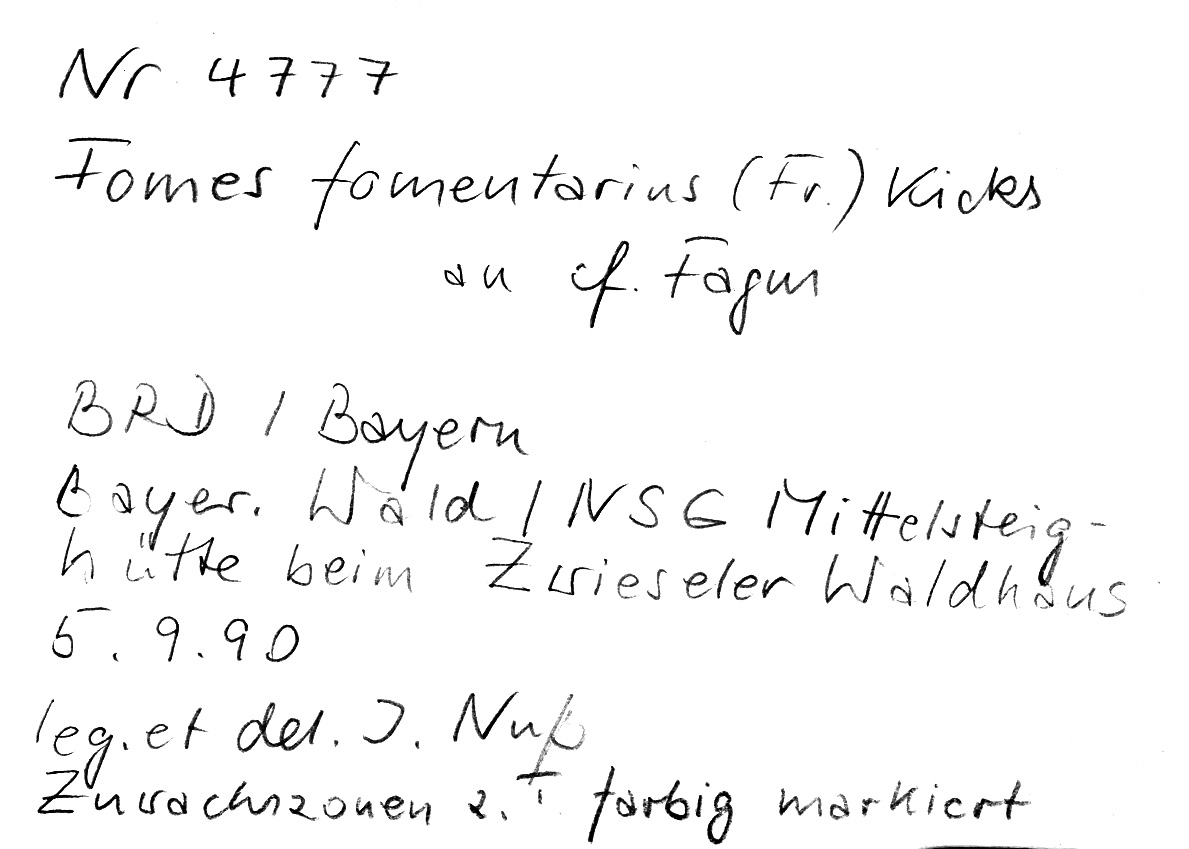 Nr 4777
Fomes fomentarius (Fr.) Kickx
an cf. Fagus
BRD / Bayern
Bayer. Wald / NSG Mittelsteig-
hütte beim Zwieseler Waldhaus
5.9.90
leg. et det. J. Nuß
Zuwachszonen z. T. farbig markiert